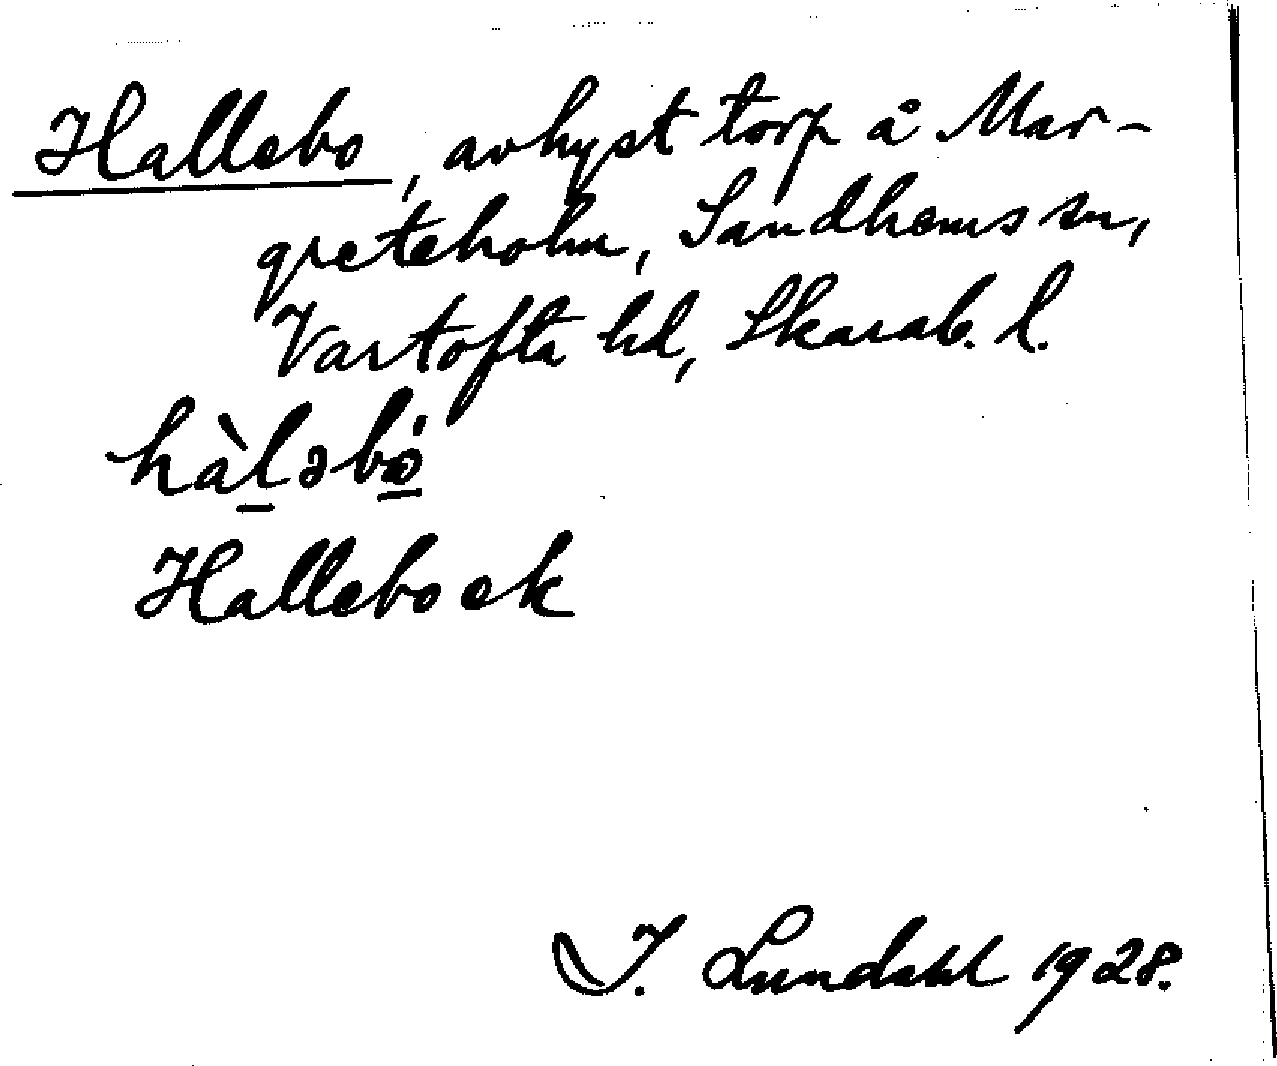 Hallebo, avhyst torp å Mar-
greteholm, Sandhems sn,
Vartofta hd, Skarab. l.
hàl̲əbò̲
Hallebo ek
I. Lundahl 1928.